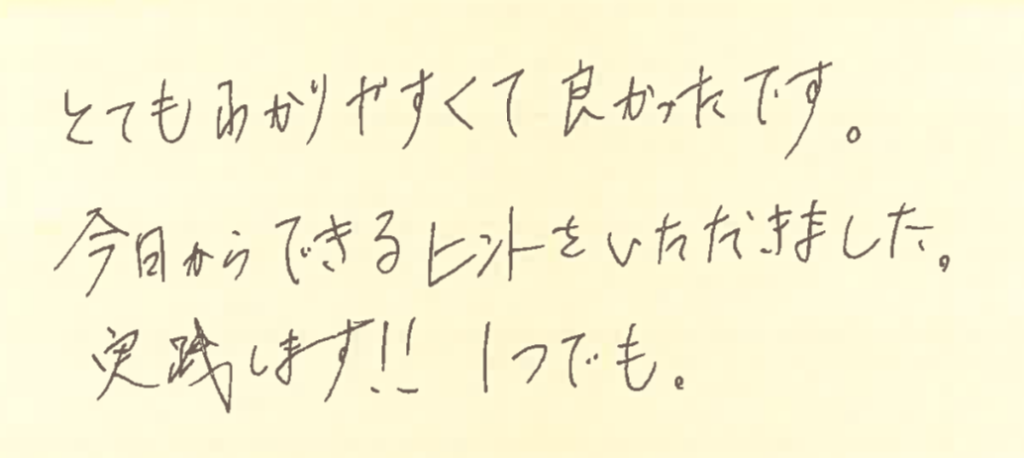 とてもわかりやすくて良かったです。
今日からできるヒントをいただきました。
実践します!! 1つでも。